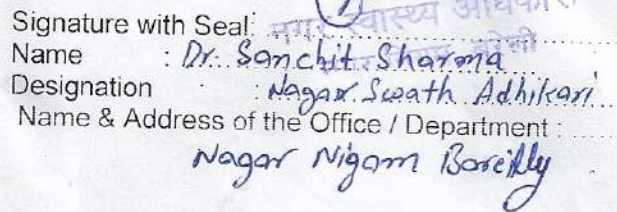 Signature with Seal: नगर स्वास्थ्य अधिकारी
बरेली
Name : Dr. Sanchit Sharma
Designation : Nagar Swath Adhikari
Name & Address of the Office / Department :
Nagar Nigam Bareilly